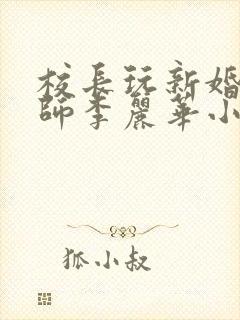 校長玩新婚
師李麗華小
狐小叔